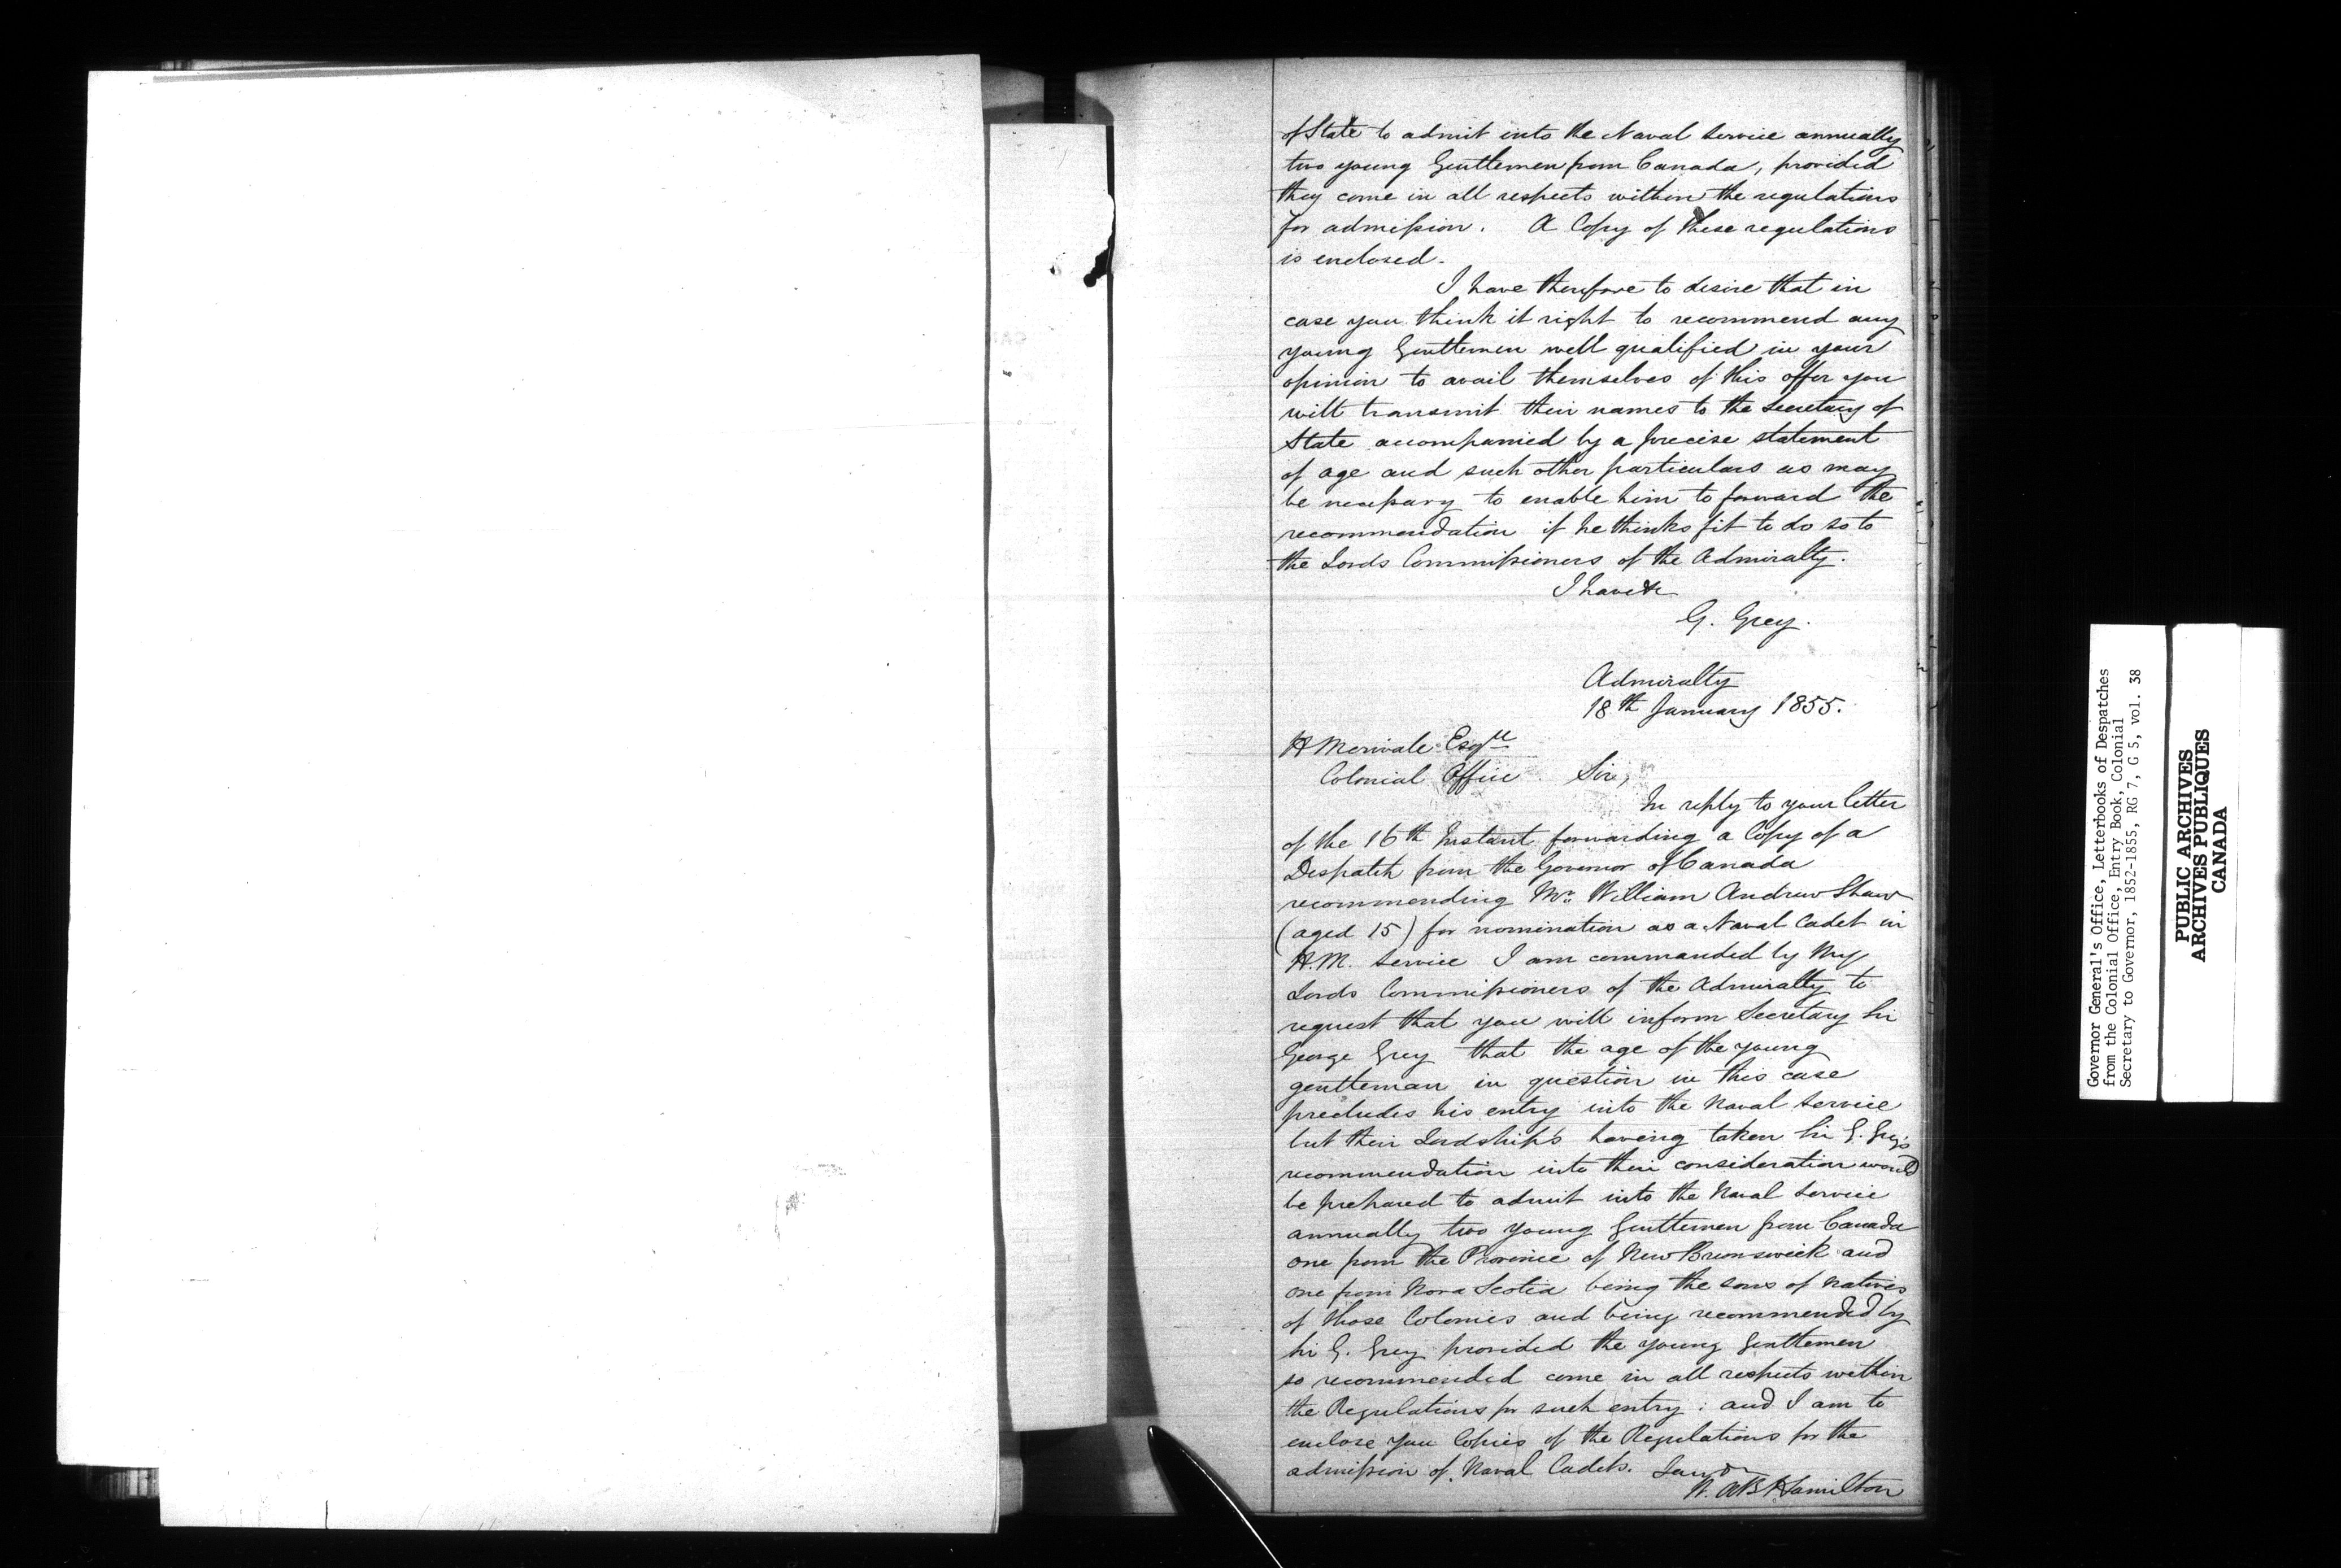 of State to admit into the Naval Service annually
two young Gentlemen from Canada, provided
they come in all respects within the regulations
for admission. A Copy of these regulations
is enclosed.
I have therefore to desire that in
case you think it right to recommend any
young Gentlemen well qualified in your
opinion to avail themselves of this offer you
will transmit their names to the Secretary of
State accompanied by a precise statement
of age and such other particulars as may
be necessary to enable him to forward the
recommendation if he thinks fit to do so to
the Lords Commissioners of the Admiralty.
I have &c
G. Grey.
Admiralty
18th January 1855.
H Merivale Esqre
Colonial Office Sir,
In reply to your letter
of the 16th Instant forwarding a Copy of a
Despatch from the Governor of Canada
recommending Mr. William Andrew Shaw
(aged 15) for nomination as a Naval Cadet in
H.M. Service I am commanded by My
Lords Commissioners of the Admiralty to
request that you will inform Secretary Sir
George Grey that the age of the young
gentleman in question in this case
precludes his entry into the Naval Service
but their Lordships having taken Sir G. Grey's
recommendation into their consideration would
be prepared to admit into the Naval Service
annually two young Gentlemen from Canada
one from the Province of New Brunswick and
one from Nova Scotia being the sons of natives
of those Colonies and being recommended by
Sir G. Grey provided the young Gentlemen
so recommended come in all respects within
the Regulations for such entry: and I am to
enclose you Copies of the Regulations for the
admission of Naval Cadets. I am &c
W. A B Hamilton
Governor General's Office, Letterbooks of Despatches
from the Colonial Office, Entry Book, Colonial
Secretary to Governor, 1852-1855, RG 7, G 5, vol. 38
PUBLIC ARCHIVES
ARCHIVES PUBLIQUES
CANADA